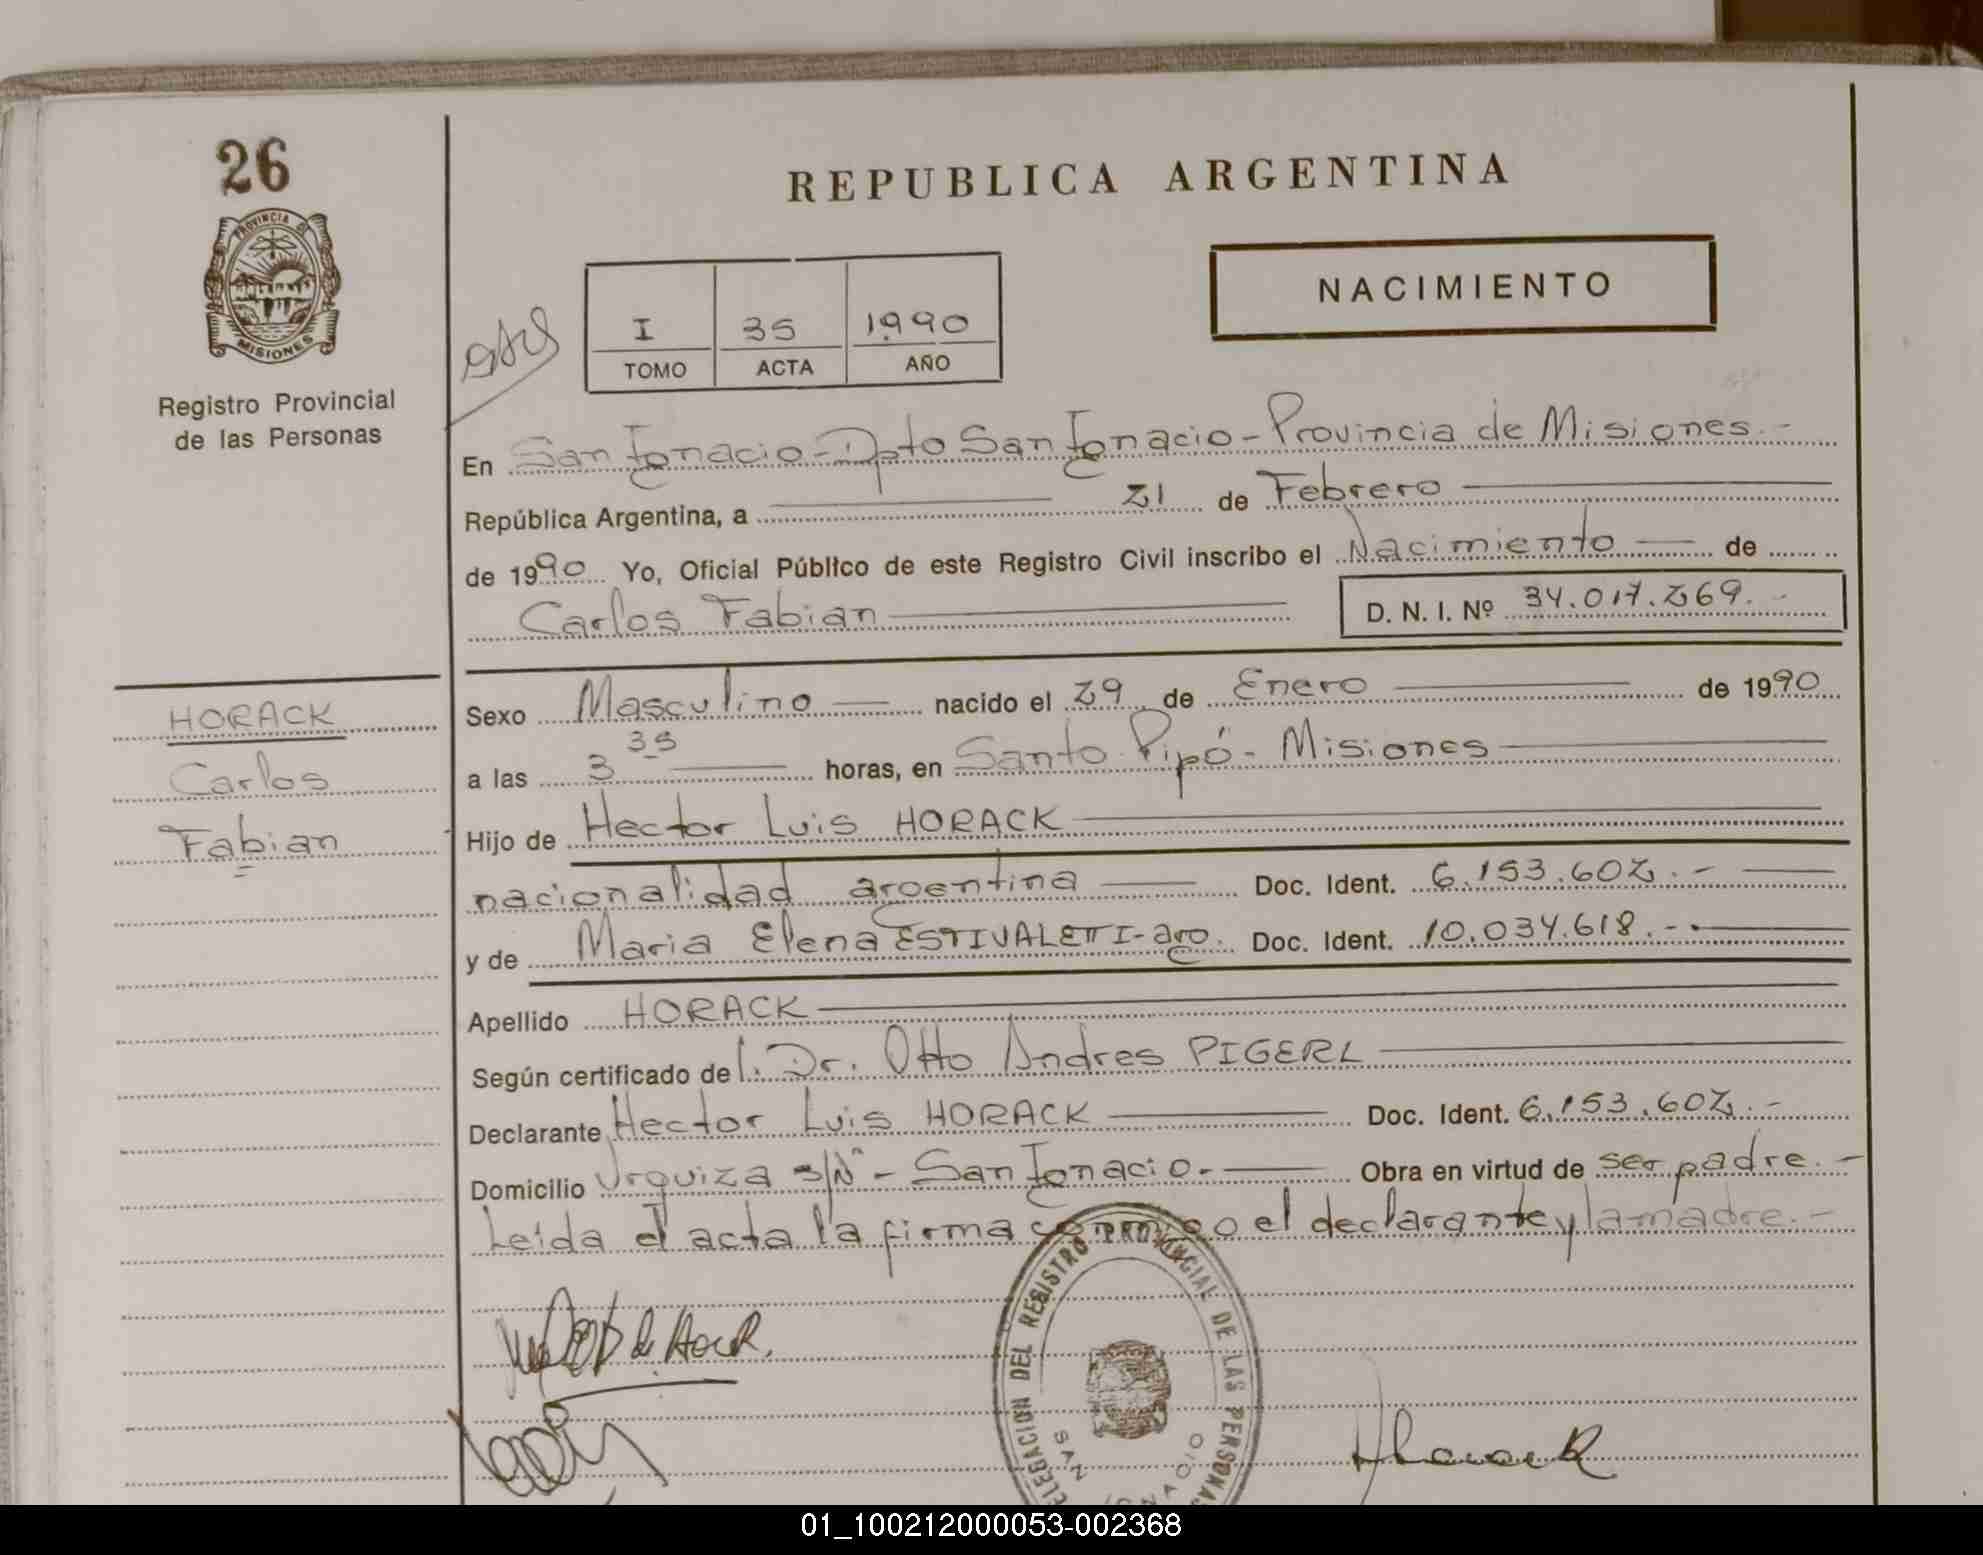 26
PROVINCIA DE
MISIONES
Registro Provincial
de las Personas
REPUBLICA ARGENTINA
NACIMIENTO
I 35 1990
TOMO ACTA AÑO
En San Ignacio - Dpto San Ignacio - Provincia de Misiones.-
República Argentina, a 21 de Febrero
de 1990 Yo, Oficial Público de este Registro Civil inscribo el Nacimiento de
Carlos Fabian D. N. I. Nº 34.017.269.-
HORACK
Carlos
Fabian
Sexo Masculino nacido el 29 de Enero de 1990
a las 3 35 horas, en Santo Pipó - Misiones
Hijo de Hector Luis HORACK
nacionalidad argentina Doc. Ident. 6.153.602.-
y de Maria Elena ESTIVALETTI - arg. Doc. Ident. 10.034.618.-
Apellido HORACK
Según certificado del. Dr. Otto Andres PIGERL
Declarante Hector Luis HORACK Doc. Ident. 6.153.602.-
Domicilio Urquiza S/Nº - San Ignacio.- Obra en virtud de ser padre.-
Leida el acta la firma conmigo el declarante y la madre.-
DELEGACION DEL REGISTRO PROVINCIAL DE LAS PERSONAS
SAN IGNACIO
Horack
01_100212000053-002368